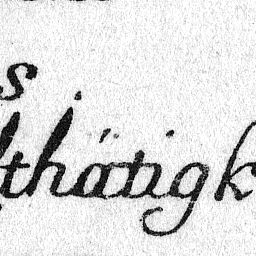 s
thätigk